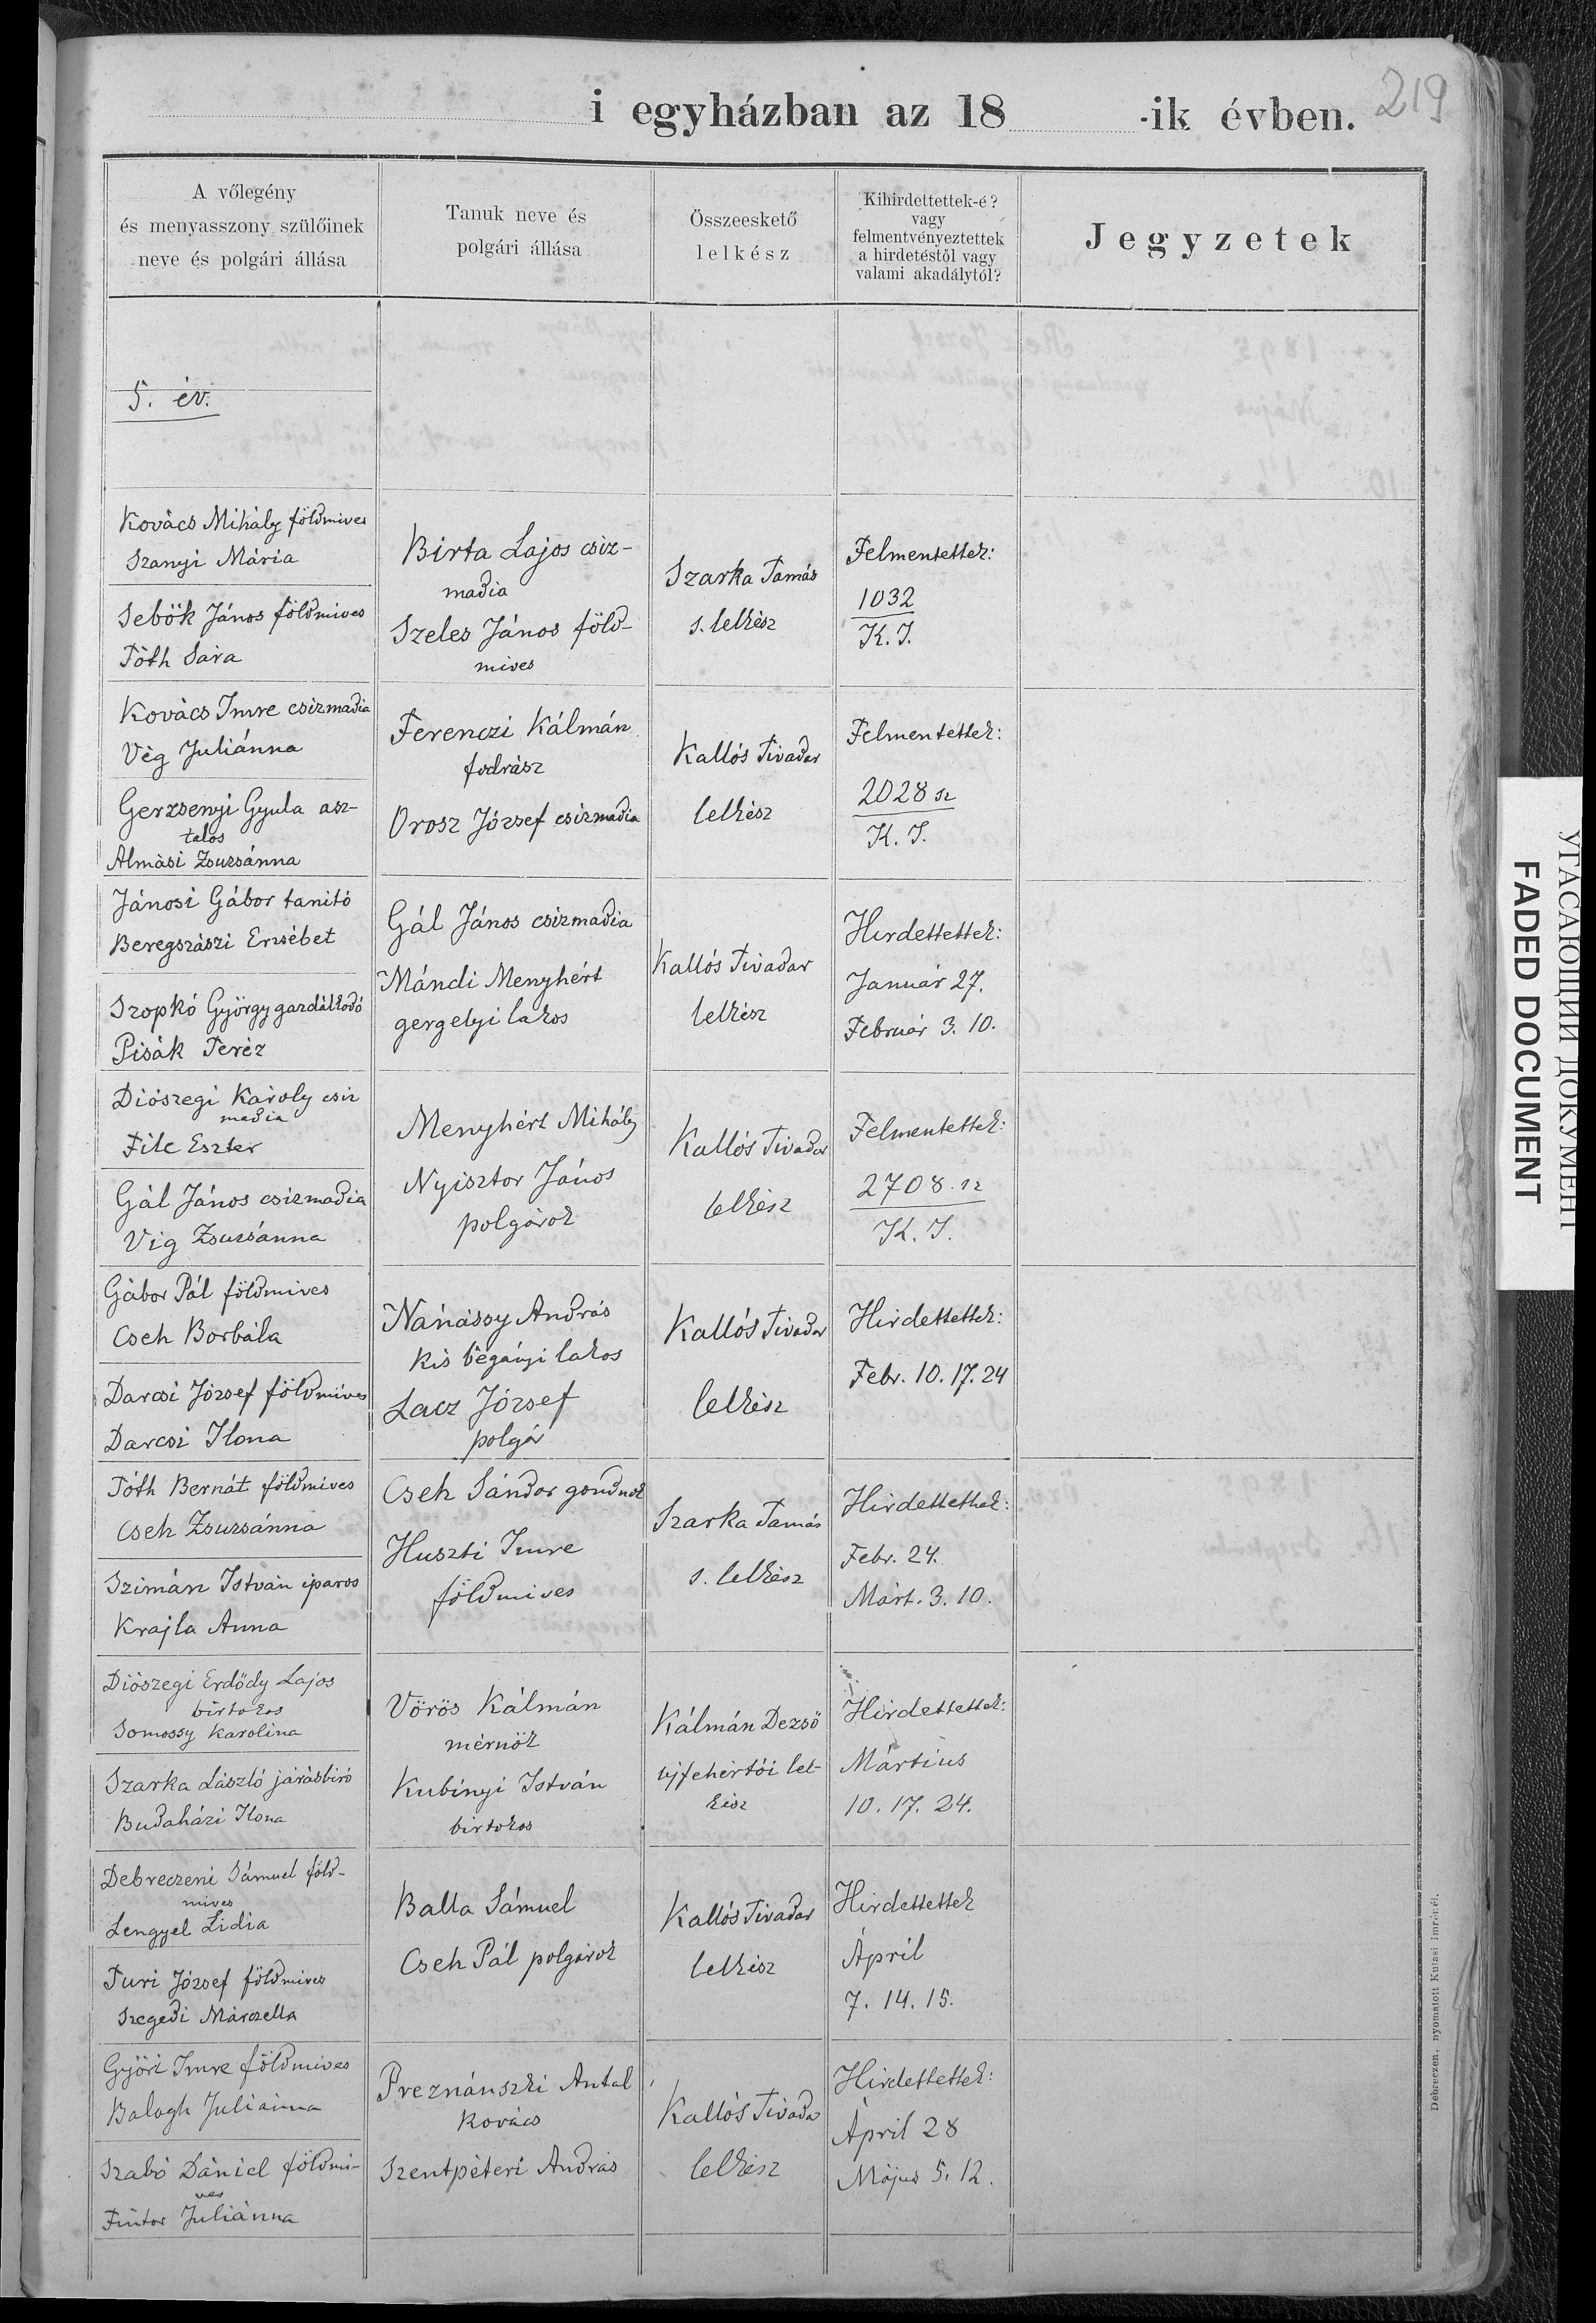 219
i egyházban az 18 -ik évben.
A vőlegény
és menyasszony szülőinek
neve és polgári állása
Tanuk neve és
polgári állása
Összeeskető
lelkész
Kihirdettettek-é?
vagy
felmentvényeztettek
a hirdetéstől vagy
valami akadálytól?
Jegyzetek
5. év.
Kovács Mihály földmives
Szanyi Mária
Sebők János földmives
Tóth Sára
Birta Lajos csiz-
madia
Szeles János föld-
mives
Szarka Tamás
s. lelkész
Felmentettek:
1032
K. I.
Kovács Imre csizmadia
Vég Juliánna
Gerzsenyi Gyula asz-
talos
Almási Zsuzsánna
Ferenczi Kálmán
fodrász
Orosz József csizmadia
Kallós Tivadar
lelkész
Felmentettek:
2028 sz
K. I.
Jánosi Gábor tanitó
Beregszászi Erzsébet
Szopkó György gazdálkodó
Pisák Teréz
Gál János csizmadia
Mándi Menyhért
gergelyi lakos
Kallós Tivadar
lelkész
Hirdettettek:
Január 27.
Február 3. 10.
Diószegi Károly csiz
madia
File Eszter
Gál János csizmadia
Vig Zsuzsánna
Menyhért Mihály
Nyisztor János
polgárok
Kallós Tivadar
lelkész
Felmentettek:
2708. sz
K. I.
Gábor Pál földmives
Cseh Borbála
Darcsi József földmives
Darcsi Ilona
Nánássy András
Kis bégányi lakos
Lacz József
polgár
Kallós Tivadar
lelkész
Hirdettettek:
Febr. 10. 17. 24
Tóth Bernát földmives
Cseh Zsuzsánna
Szimán István iparos
Krajla Anna
Cseh Sándor gondnok
Huszti Imre
földmives
Szarka Tamás
s. lelkész
Hirdettettek:
Febr. 24.
Márt. 3. 10.
Diószegi Erdődy Lajos
birtokos
Somossy Karolina
Szarka László járásbiró
Budaházi Ilona
Vörös Kálmán
mérnök
Kubinyi István
birtokos
Kálmán Dezső
ujfehértói lel-
kész
Hirdettettek:
Mártius
10. 17. 24.
Debreczeni Sámuel föld-
mives
Lengyel Lidia
Turi József földmives
Szegedi Márczella
Balla Sámuel
Cseh Pál polgárok
Kallós Tivadar
lelkész
Hirdettettek
Ápril
7. 14. 15.
Győri Imre földmives
Balogh Juliánna
Szabó Dániel földmi-
ves
Fintor Juliánna
Preznánszki Antal
Kovács
Szentpéteri András
Kallós Tivadar
lelkész
Hirdettettek:
Ápril 28
Május 5. 12.
Debreczen, nyomatott Kutasi Imrénél.
УГАСАЮЩИЙ ДОКУМЕНТ
FADED DOCUMENT